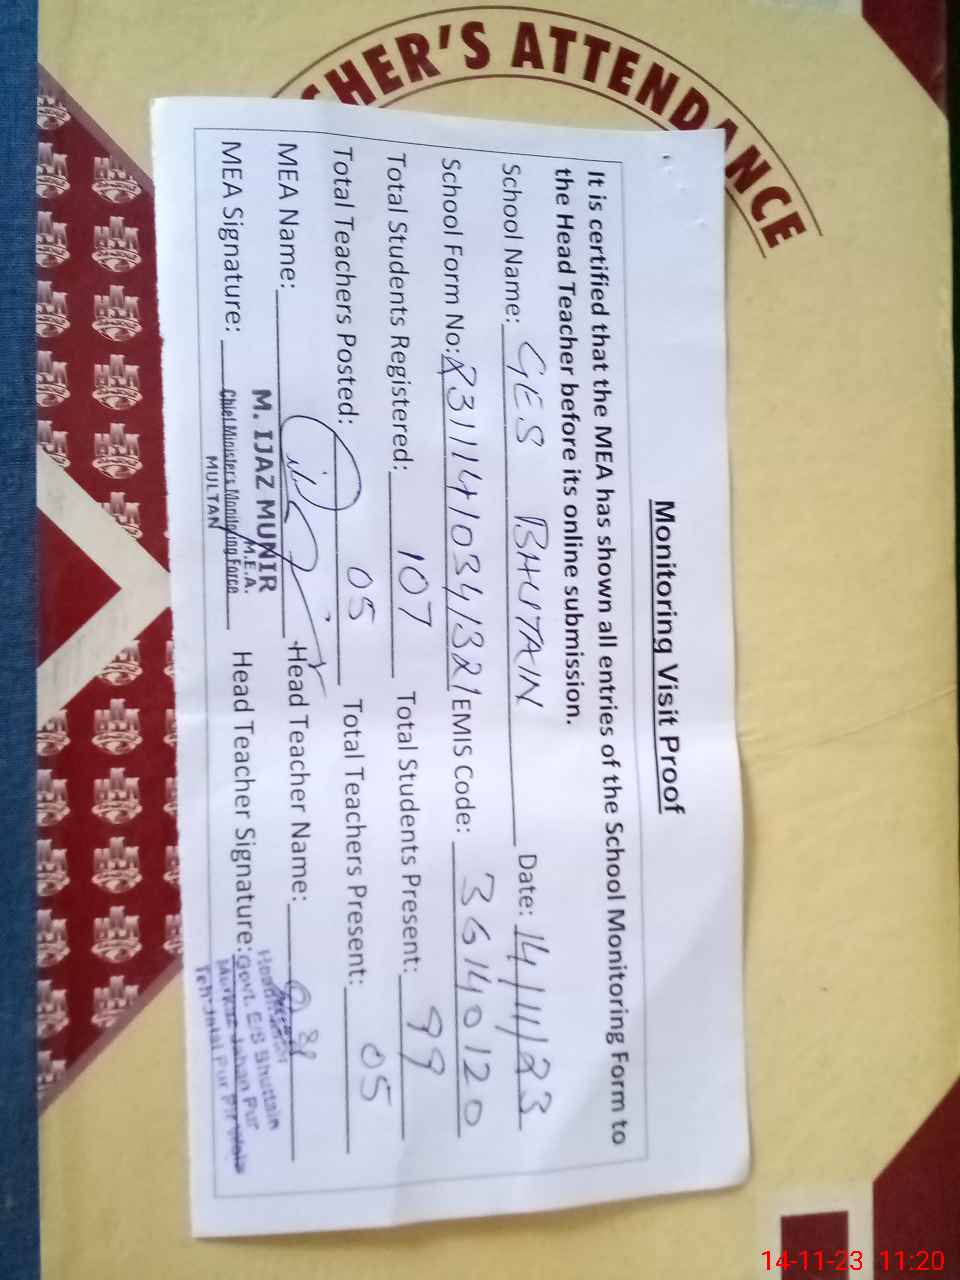 HER'S ATTENDANCE
Monitoring Visit Proof
It is certified that the MEA has shown all entries of the School Monitoring Form to
the Head Teacher before its online submission.
School Name: GES BHUTAIN Date: 14/11/23
School Form No: EMIS Code: 36140120
Total Students Registered: 107 Total Students Present: 99
Total Teachers Posted: 05 Total Teachers Present: 05
MEA Name: Head Teacher Name:
M. IJAZ MUNIR
M.E.A.
MEA Signature: Head Teacher Signature:
Chief Minister's Monitoring Force
MULTAN
Headmaster
Govt. E/S Bhuttain
Markaz Jahan Pur
Teh: Jalal Pur Pir Wala
14-11-23 11:20